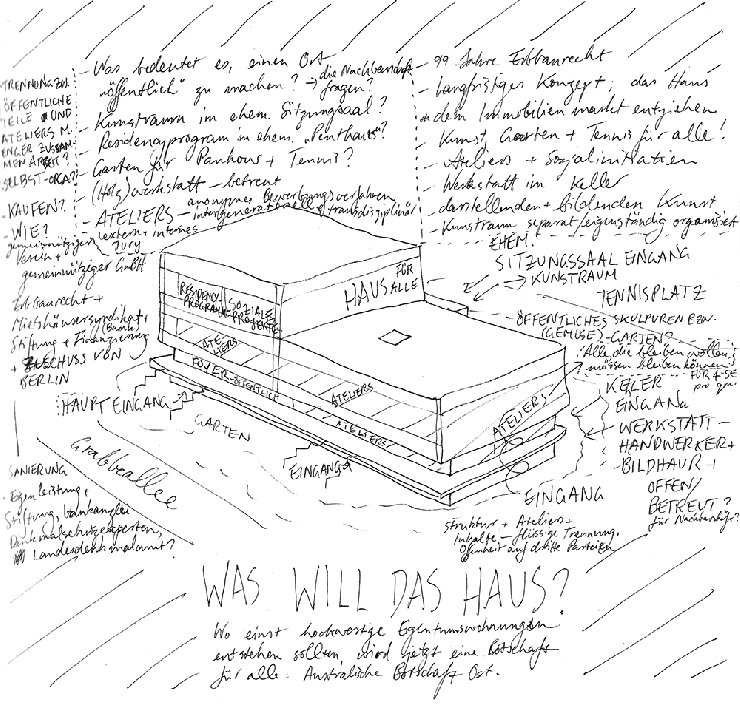 - Was bedeutet es, einen Ort
"öffentlich" zu machen? → die Nachbarschaft
fragen?
- Kunstraum im ehem. Sitzungssaal?
- Residenzprogram in ehem. "Penthaus"?
- Garten für Pankows + Tennis?
- (Holz)werkstatt - betreut
- ATELIERS - anonyme Bewerbungsverfahren
- intergenerationell + transdisziplinär
extern + internes
Jury
TRENNUNG ZW.
ÖFFENTLICHE
TEILE UND
ATELIERS M.
ENGER ZUSAM
MENARBEIT?
SELBST-ORGA?
- KAUFEN?
- WIE?
gemeinnütziger
Verein +
gemeinnütziger GmbH
Erbbaurecht +
Mietshäusersyndikat,
Stiftung + (Bank) Finanzierung
+ ZUSCHUSS VON
BERLIN
- 99 Jahre Erbbaurecht
- Langfristiges Konzept, das Haus
dem Immobilienmarkt entziehen
- Kunst Garten + Tennis für alle!
- Ateliers + Sozialinitiativen
- Werkstatt im Keller
- darstellenden + bildenden Kunst
- Kunstraum separat/eigenständig organisiert
EHEM.
SITZUNGSSAAL EINGANG
KUNSTRAUM
TENNISPLATZ
ÖFFENTLICHES SKULPUREN BZW.
(GEMÜSE)-GARTEN?
"Alle die bleiben wollen,
müssen bleiben können!"
KELER
EINGANG
WERKSTATT -
HANDWERKER +
BILDHAUR -
OFFEN/
BETREUT?
für Nachbarschaft?
HAUS FÜR ALLE
RESIDENCY
PROGRAM
SOZIALE
PROJEKTE
ATELIERS
FOYER-ÖFFENTLICH
ATELIERS
ATELIERS
ATELIERS
HAUPTEINGANG
GARTEN
EINGANG
EINGANG
Grabbeallee
SANIERUNG
- Eigenleistung,
Stiftung,
Denkmalschutzexperten,
Landesdenkmalamt?
Struktur + Ateliers +
Inhalte - flüssige Trennung,
Offenheit auf dritte Parteien
WAS WILL DAS HAUS?
Wo einst hochwertige Eigentumswohnungen
entstehen sollten, wird jetzt eine Botschaft
für alle. Australische Botschaft Ost.